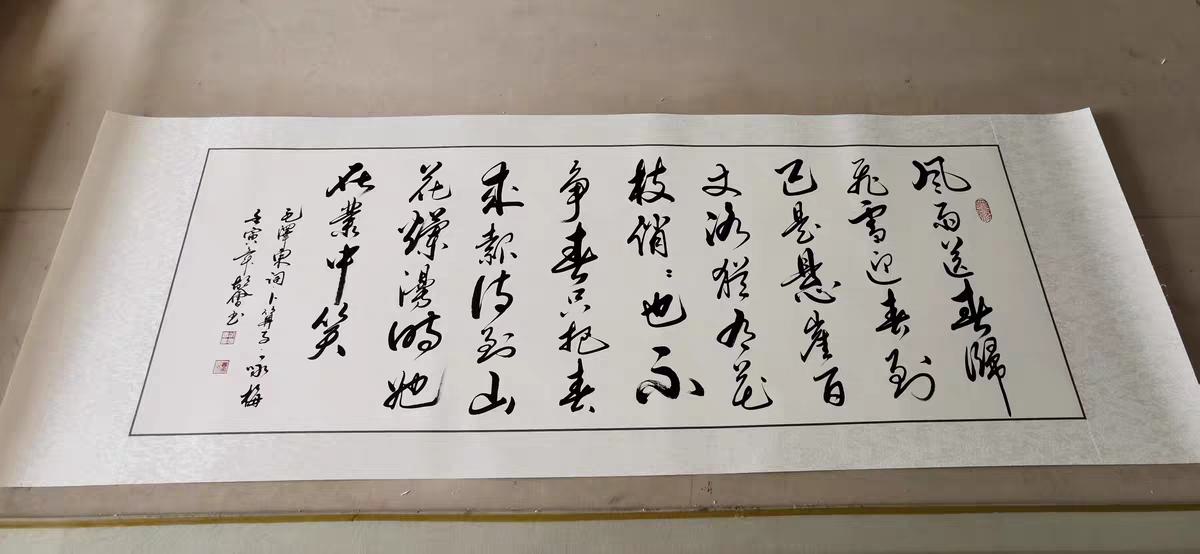 风雨送春歸
飞雪迎春到
已是悬崖百
丈冰犹有花
枝俏俏也不
争春只把春
来報待到山
花爛漫時她
在叢中笑
毛澤東词卜算子咏梅
壬寅年 书